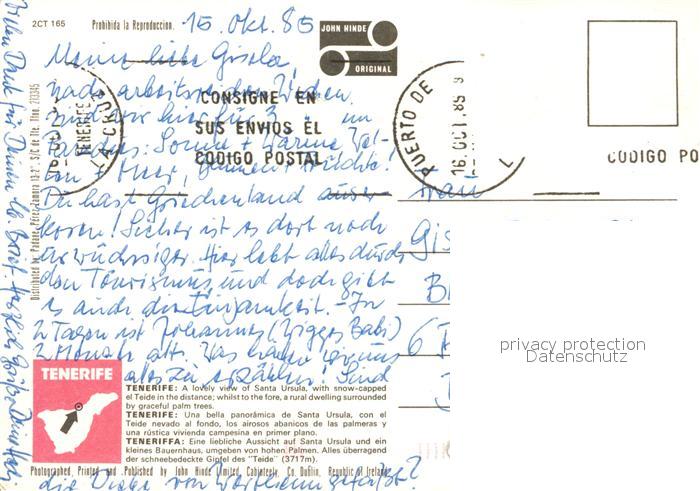 2CT 165
Prohibida la Reproduccion.
15. Okt. 85
JOHN HINDE
ORIGINAL
Meine liebe Gisela,
nach arbeitsreichen Wochen
sind wir hier für 3
CONSIGNE EN
SUS ENVIOS EL
CODIGO POSTAL
TENERIFE
LA CRUZ
PUERTO DE
16.OCT.85
CODIGO PO
Sonne + Warme
+ Meer,
Du hast Griechenland auser-
koren! Sicher ist es dort noch
urwüchsiger. Hier lebt alles durch
den Tourismus, und doch gibt
es auch die Einsamkeit. - In
2 Tagen ist Johannes (Zigges Babi)
2 Monate alt. Was haben wir uns
alles zu erzählen! Sind
die Dicke von
Frau
Gis
B
6
TENERIFE
TENERIFE: A lovely view of Santa Ursula, with snow-capped
el Teide in the distance; whilst to the fore, a rural dwelling surrounded
by graceful palm trees.
TENERIFE: Una bella panorámica de Santa Ursula, con el
Teide nevado al fondo, los airosos abanicos de las palmeras y
una rústica vivienda campesina en primer plano.
TENERIFFA: Eine liebliche Aussicht auf Santa Ursula und ein
kleines Bauernhaus, umgeben von hohen Palmen. Alles überragend
der schneebedeckte Gipfel des "Teide" (3717m).
Photographed, Printed and Published by John Hinde Limited, Cabinteely, Co. Dublin, Republic of Ireland
Distributed by Padane, Pérez Zamora 13-2°, S/C de Tfe. Tfno. 213345
Vielen Dank für Deinen lb. Brief. Herzlich grüßt Dein
privacy protection
Datenschutz